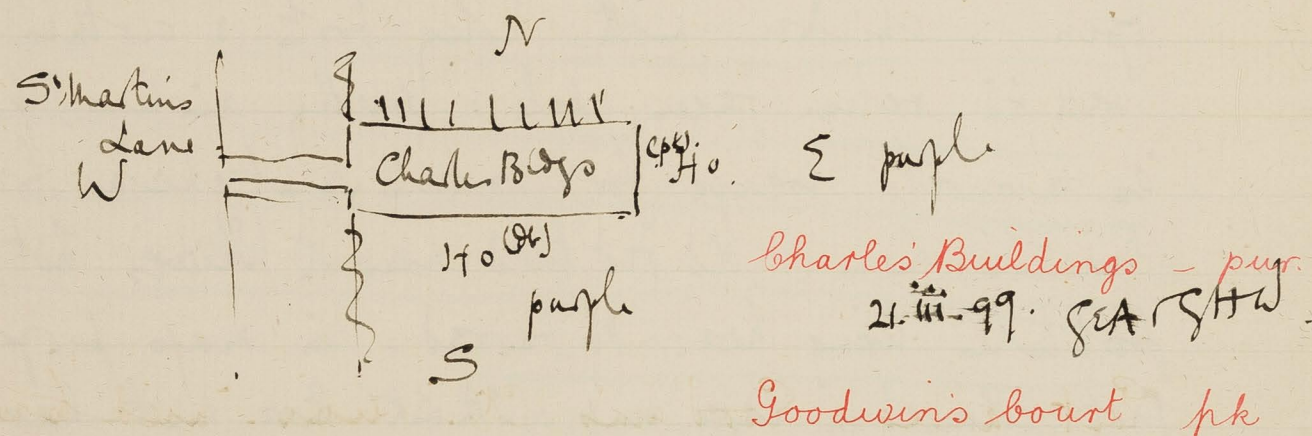 N
St Martins
Lane
W
Charles Bdgs
Ho.
E purple
Ho
purple
S
Charles' Buildings – pur.
21.iii.99. GEA GHD
Goodwin's Court pk